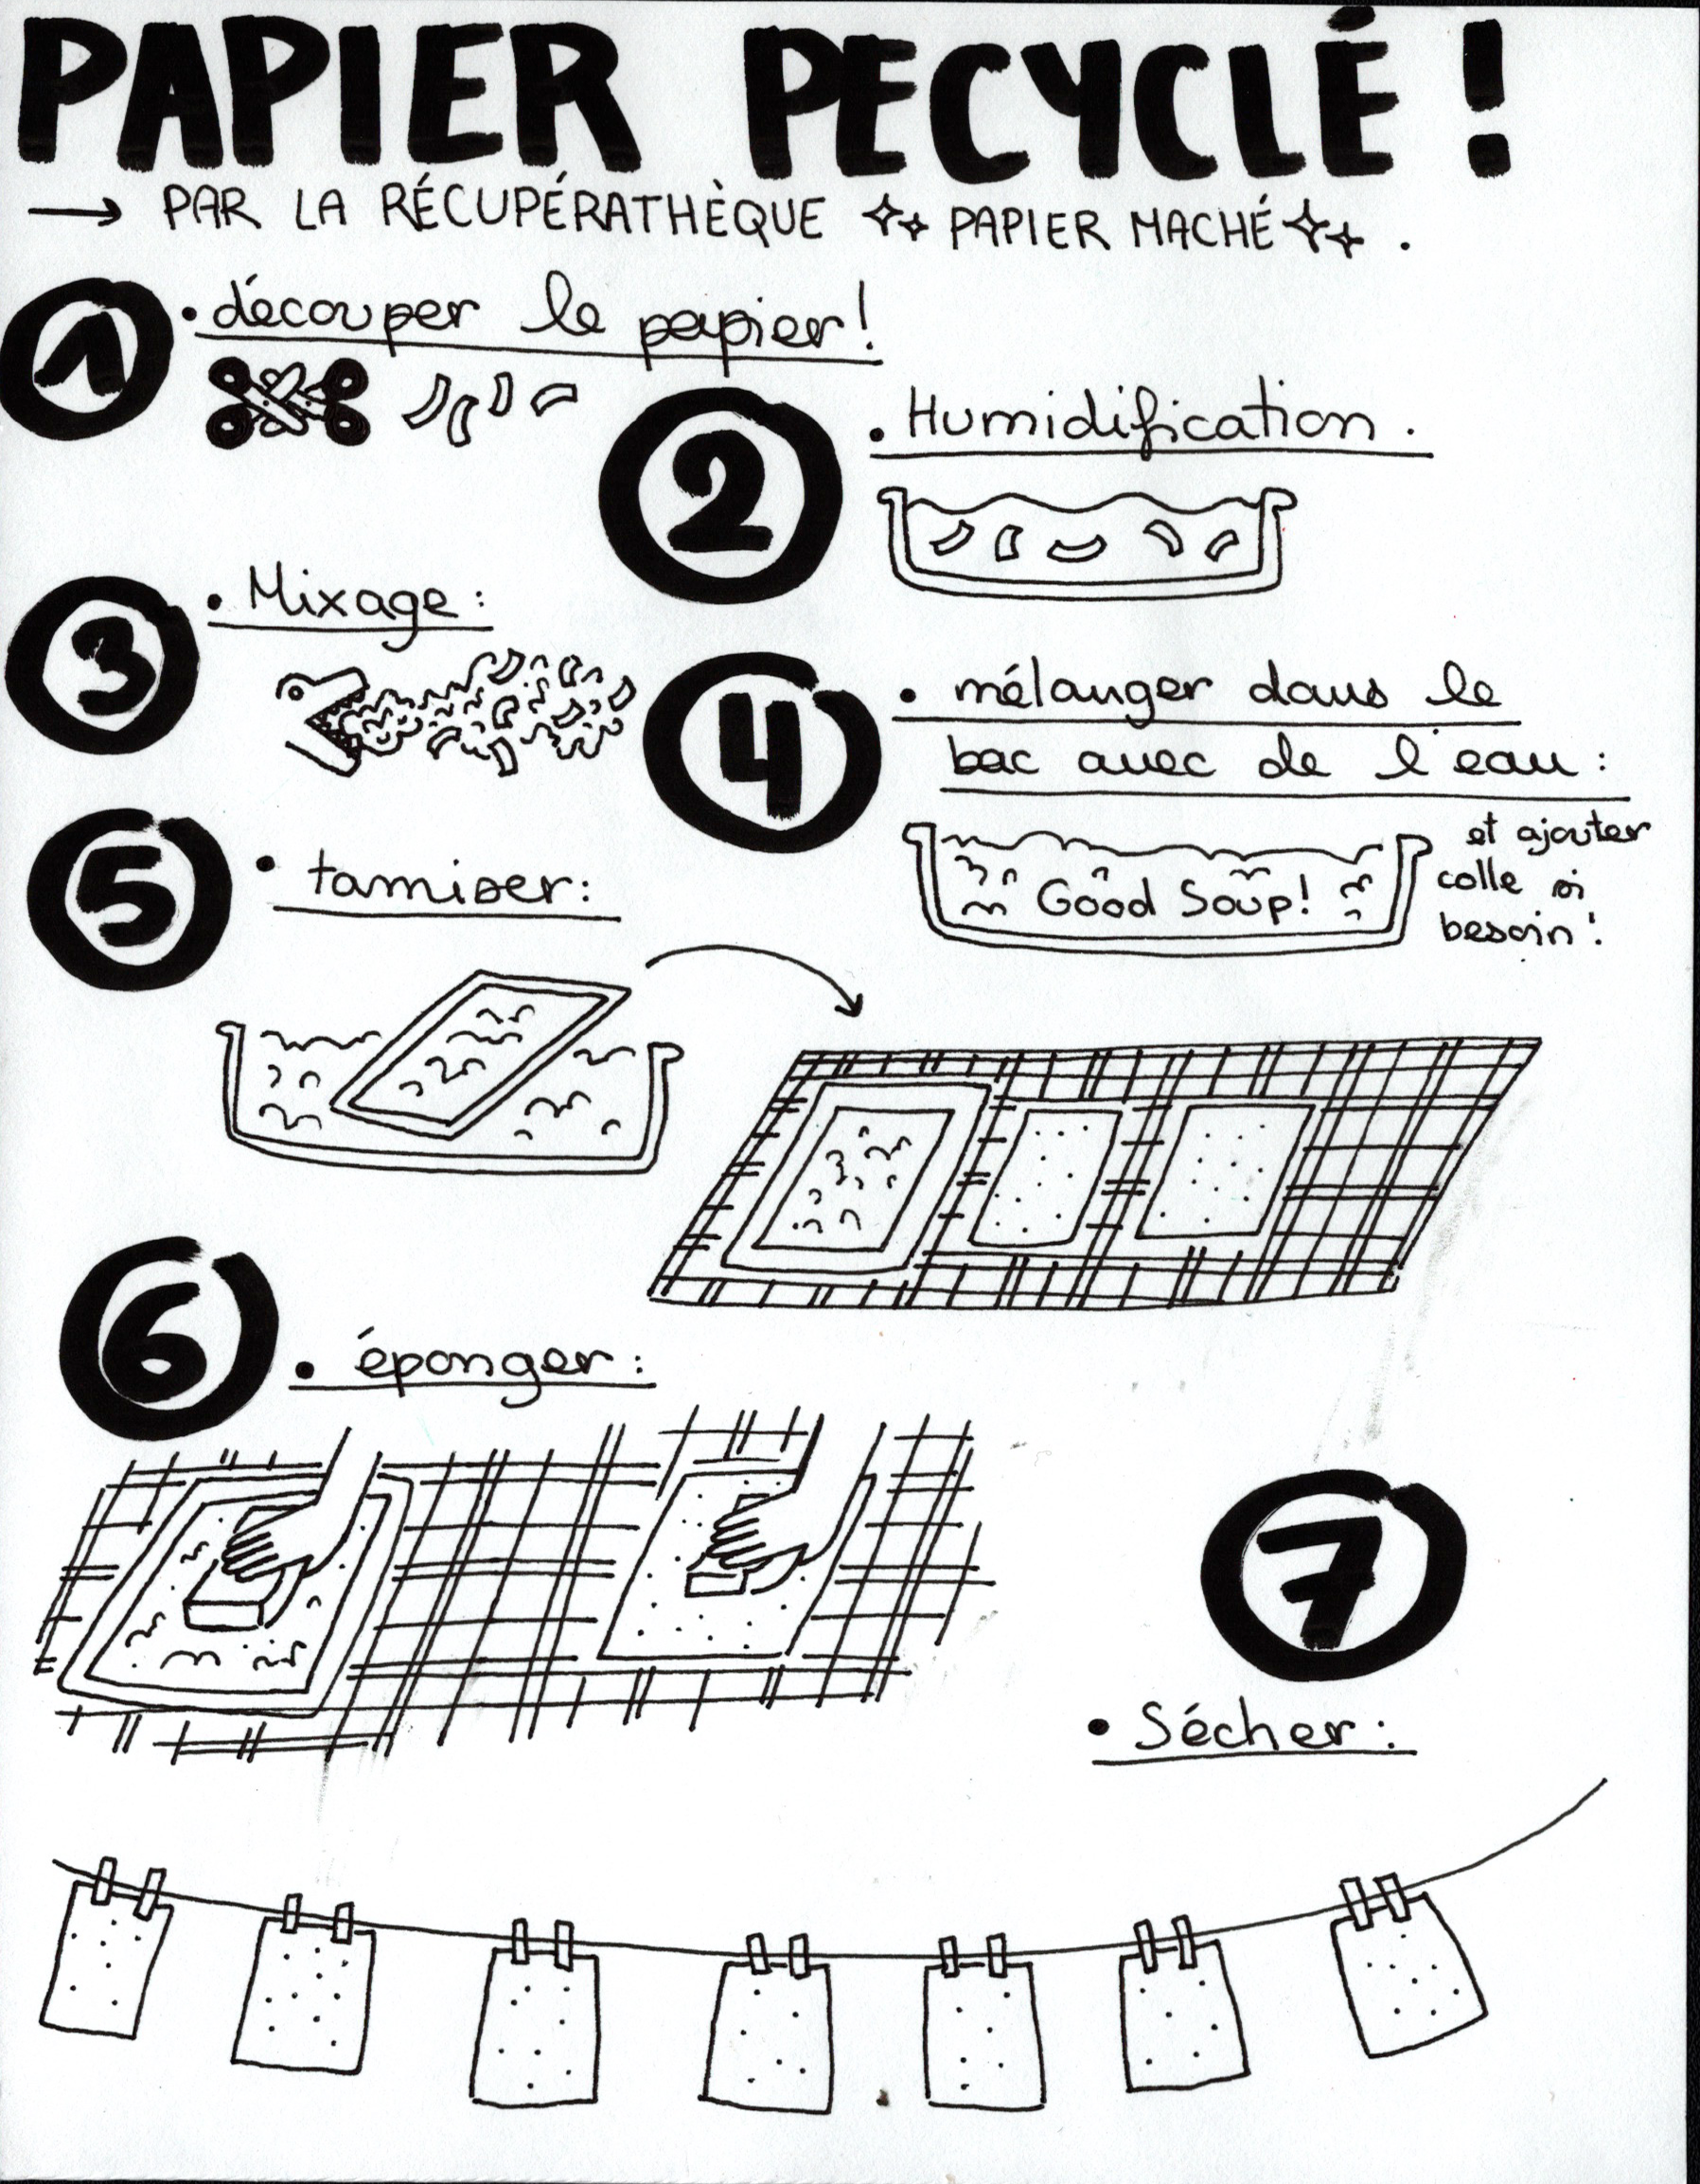 PAPIER PECYCLÉ !
→ PAR LA RÉCUPÉRATHÈQUE PAPIER MACHÉ .
1 • découper le papier !
2 • Humidification .
3 • Mixage :
4 • mélanger dans le
bac avec de l'eau :
et ajouter
colle si
besoin !
Good Soup !
5 • tamiser :
6 • éponger :
7
• Sécher :